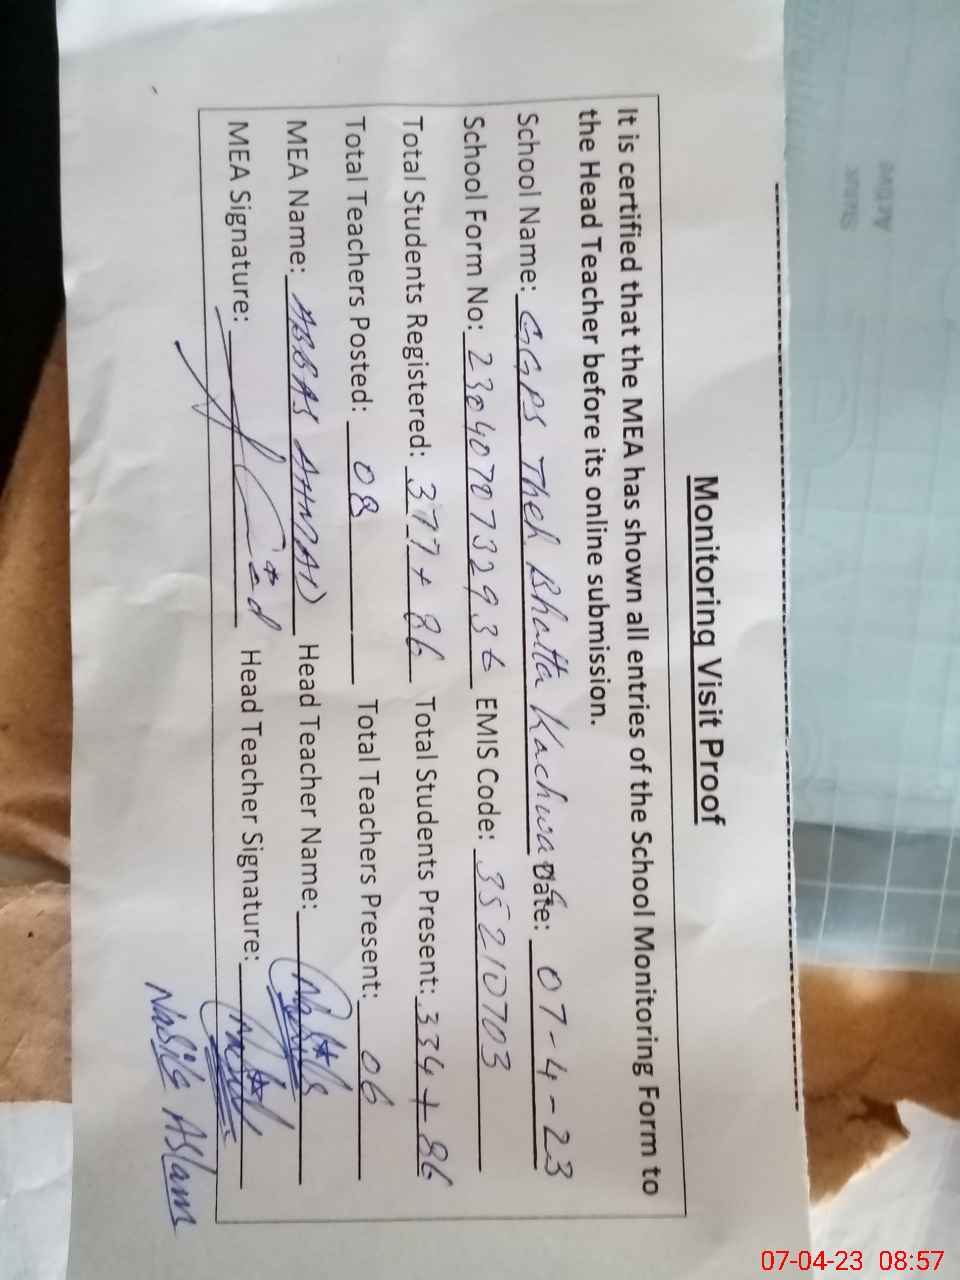 Monitoring Visit Proof
It is certified that the MEA has shown all entries of the School Monitoring Form to
the Head Teacher before its online submission.
School Name: GGPS Theh Bhatta Kachwa Date: 07-4-23
School Form No: EMIS Code: 35210703
Total Students Registered: 377+86 Total Students Present: 334+86
Total Teachers Posted: 08 Total Teachers Present: 06
MEA Name: ABBAS AHMAD Head Teacher Name:
MEA Signature: Head Teacher Signature:
Aslam
07-04-23 08:57